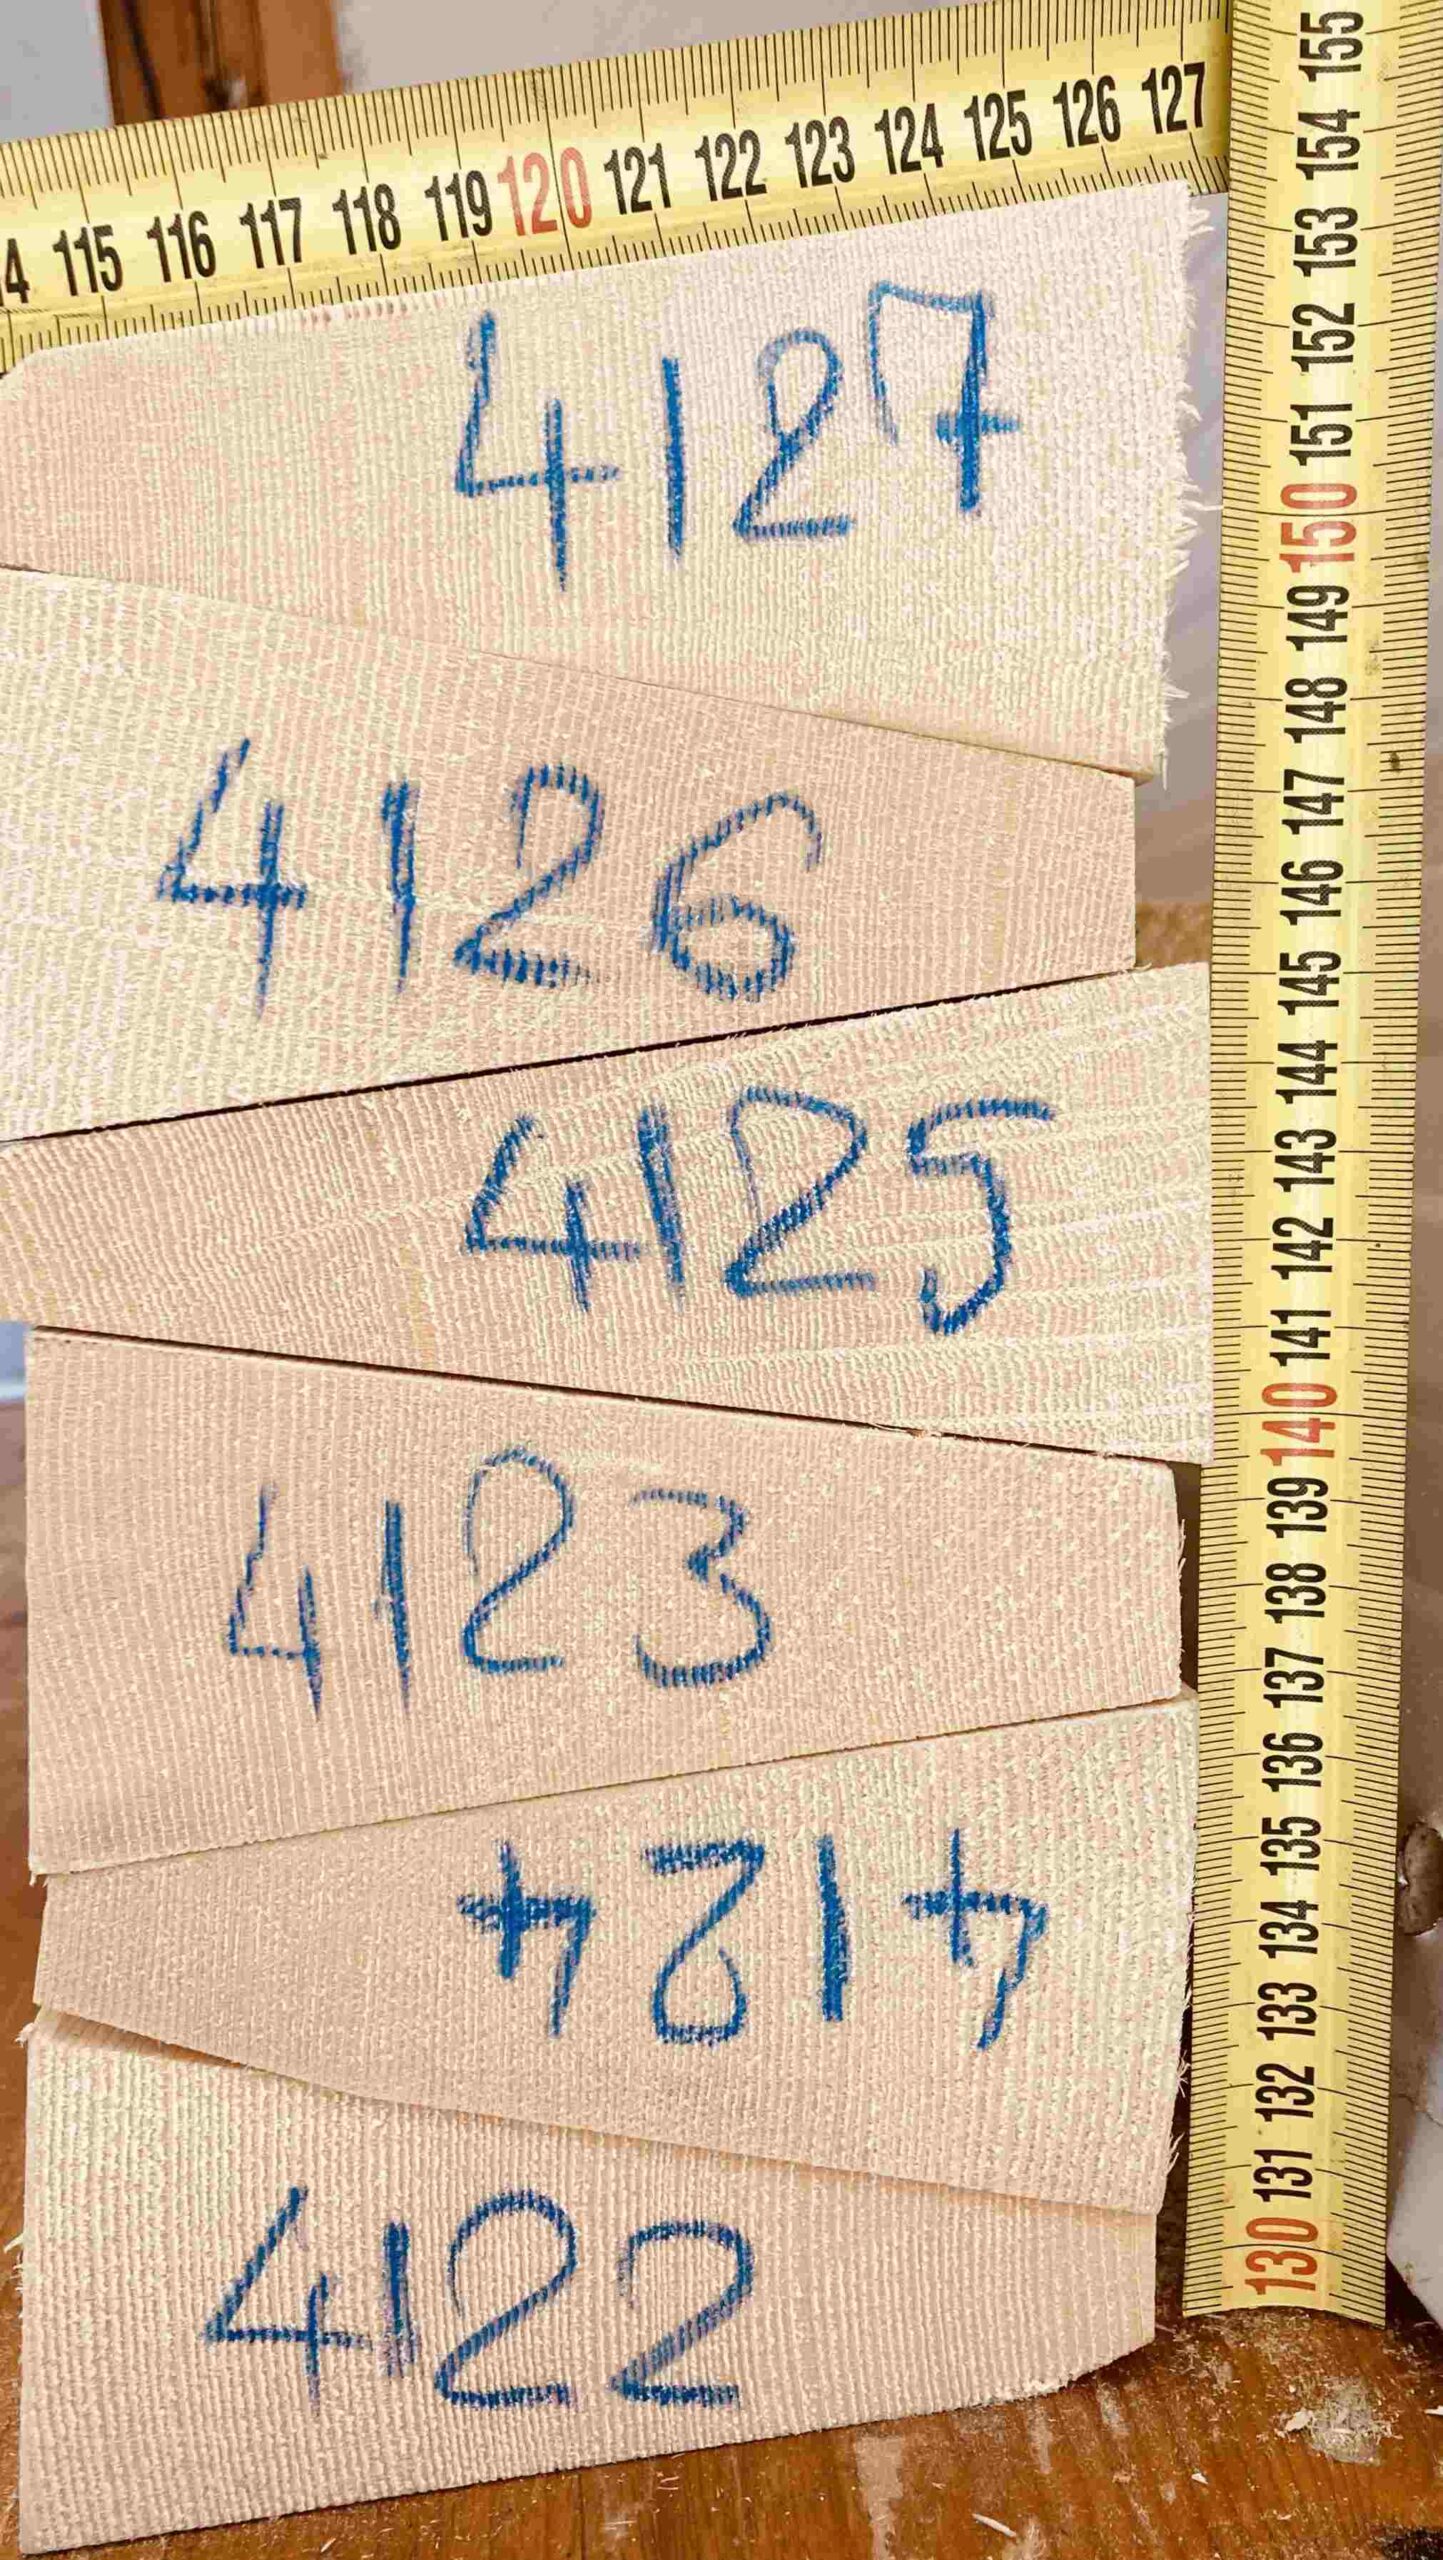 115 116 117 118 119 120 121 122 123 124 125 126 127
4127
4126
4125
4123
4124
4122
130 131 132 133 134 135 136 137 138 139 140 141 142 143 144 145 146 147 148 149 150 151 152 153 154 155